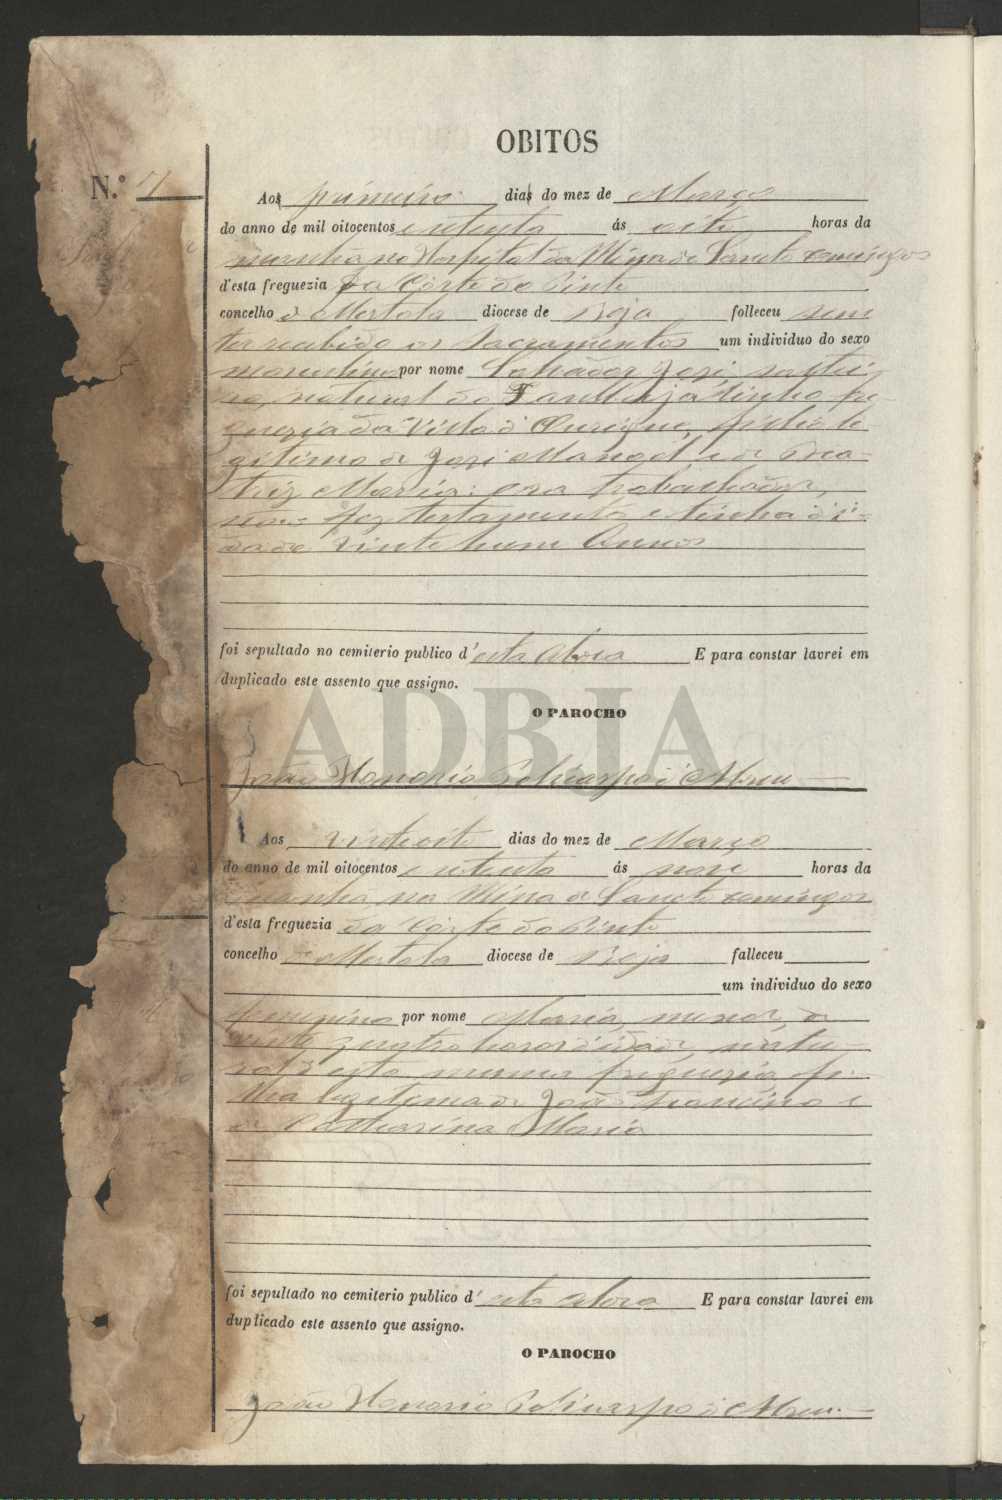 OBITOS
N.º 7
Aos primeiro dias do mez de Março
do anno de mil oitocentos e oitenta ás oito horas da
manhã no Hospital da Mina de Sancto Domingos
d'esta freguezia da Côrte do Pinto
concelho de Mertola diocese de Beja falleceu sem
ter recebido os Sacramentos um individuo do sexo
masculino por nome Salvador José, soltei-
ro, natural do fre-
guezia da Villa d'Ourique, filho le-
gitimo de José Manoel e de Bea-
triz Maria: era trabalhador,
não fez testamento e tinha d'i-
dade vinte hum Annos
foi sepultado no cemiterio publico d'esta Aldeia E para constar lavrei em
duplicado este assento que assigno.
O PAROCHO
João Honorio Policarpo d'Abreu
Aos vinte oito dias do mez de Março
do anno de mil oitocentos e oitenta ás nove horas da
manhã na Mina de Sancto Domingos
d'esta freguezia da Côrte do Pinto
concelho de Mertola diocese de Beja falleceu
um individuo do sexo
feminino por nome Maria, menor, de
vinte quatro horas d'idade, natu-
ral d'esta mesma freguezia, fi-
lha legitima de João e
de Catharina Maria
foi sepultado no cemiterio publico d'esta Aldeia E para constar lavrei em
duplicado este assento que assigno.
O PAROCHO
João Honorio Policarpo d'Abreu
ADBJA